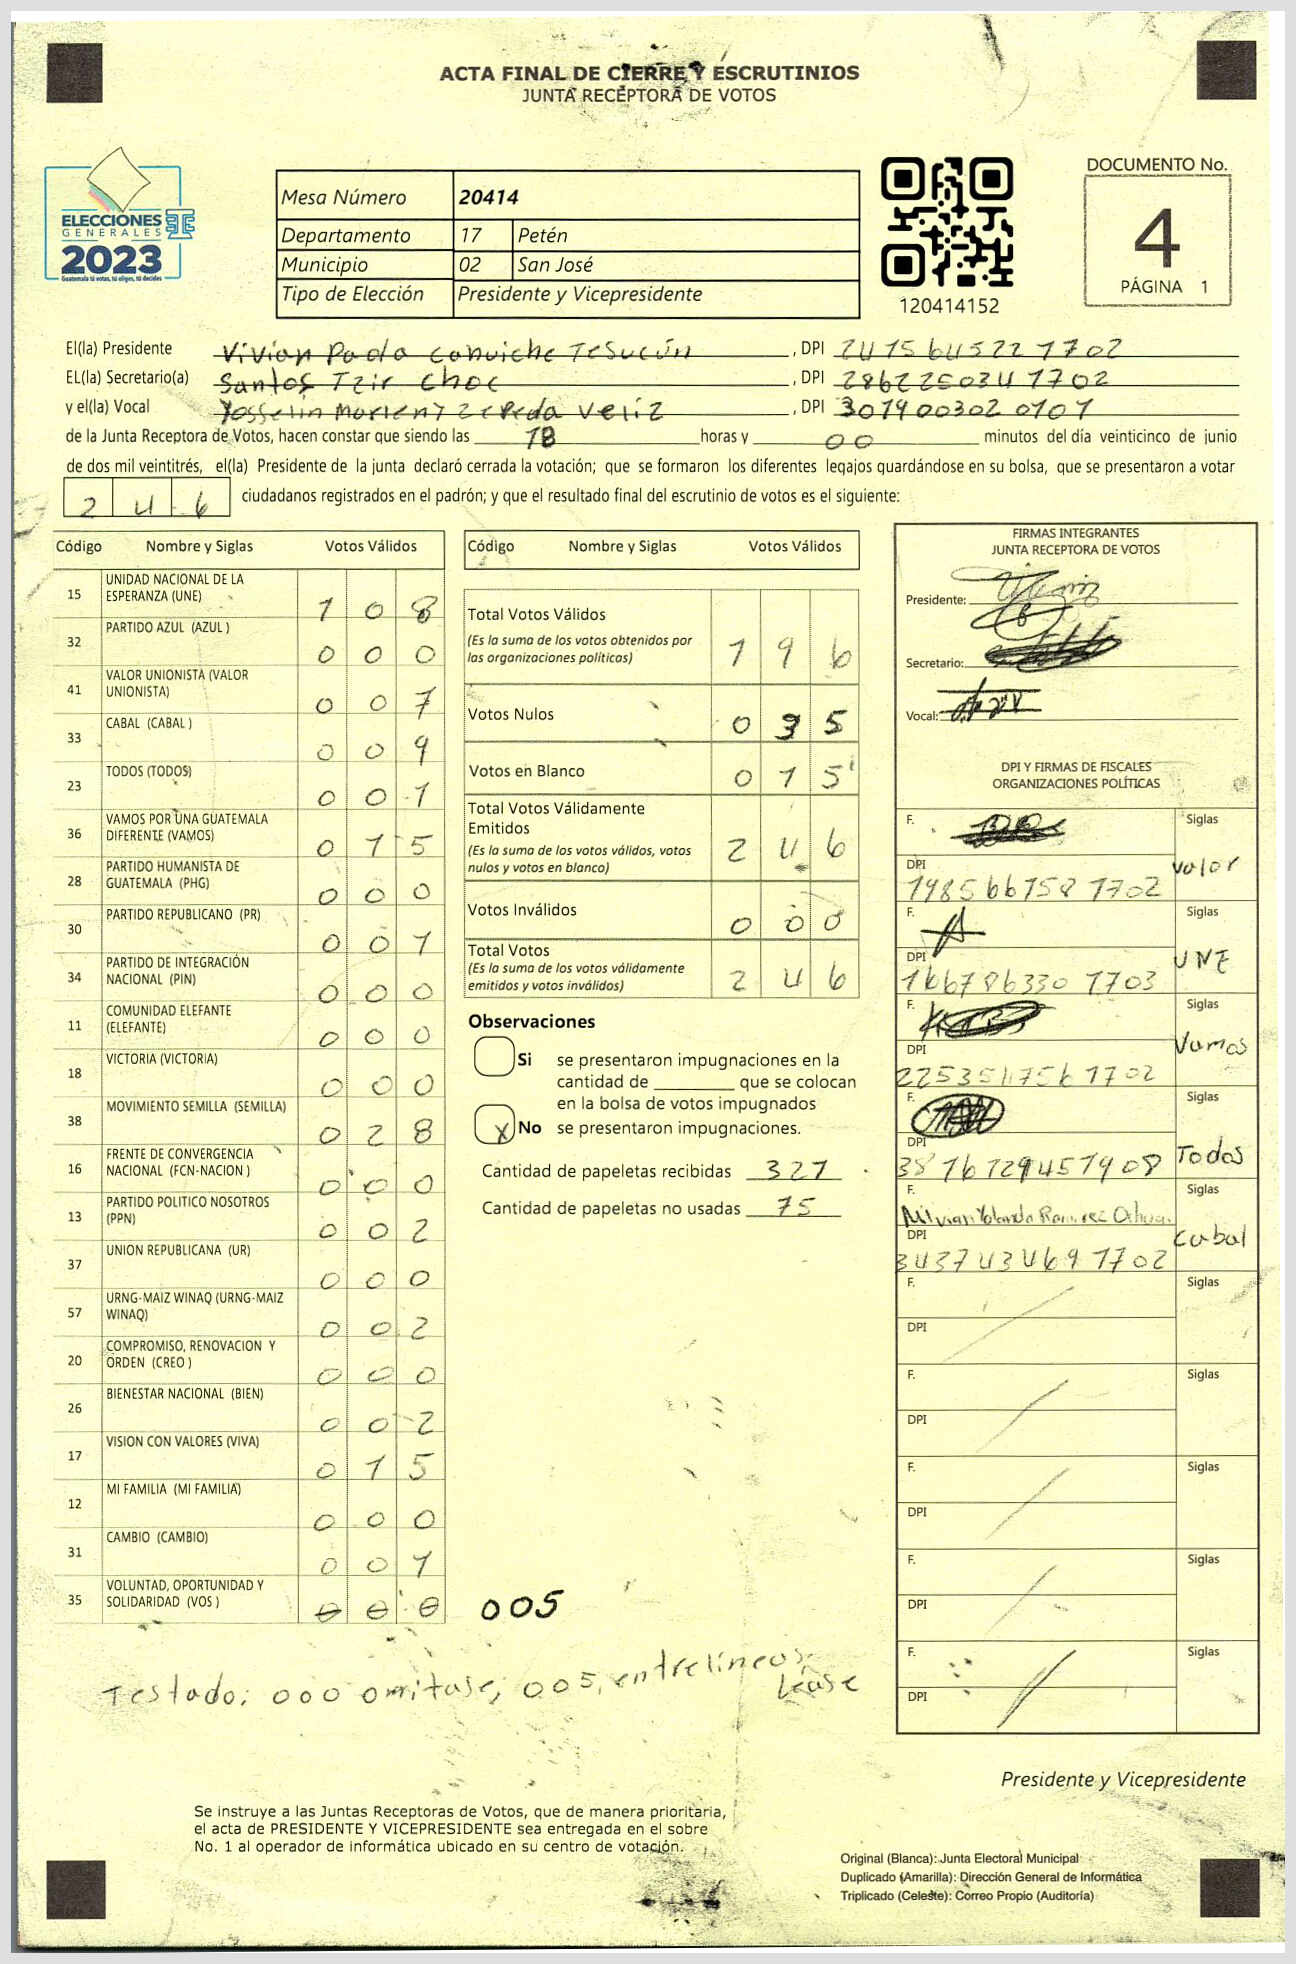 ACTA FINAL DE CIERRE Y ESCRUTINIOS
JUNTA RECEPTORA DE VOTOS
ELECCIONES
GENERALES
2023
Guatemala tú votas, tú eliges, tú decides
Mesa Número 20414
Departamento 17 Petén
Municipio 02 San José
Tipo de Elección Presidente y Vicepresidente
120414152
DOCUMENTO No.
4
PÁGINA 1
El(la) Presidente Vivian Paola Canuiche Tesucún , DPI 2415645221702
EL(la) Secretario(a) Santos Tzir Choc , DPI 2862250341702
y el(la) Vocal Yosselin Marleny Zepeda Veliz , DPI 3019003020101
de la Junta Receptora de Votos, hacen constar que siendo las 18 horas y 00 minutos del día veinticinco de junio
de dos mil veintitrés, el(la) Presidente de la junta declaró cerrada la votación; que se formaron los diferentes legajos guardándose en su bolsa, que se presentaron a votar
246 ciudadanos registrados en el padrón; y que el resultado final del escrutinio de votos es el siguiente:
Código Nombre y Siglas Votos Válidos
15 UNIDAD NACIONAL DE LA
ESPERANZA (UNE) 1 0 8
32 PARTIDO AZUL (AZUL ) 0 0 0
41 VALOR UNIONISTA (VALOR
UNIONISTA) 0 0 7
33 CABAL (CABAL ) 0 0 9
23 TODOS (TODOS) 0 0 1
36 VAMOS POR UNA GUATEMALA
DIFERENTE (VAMOS) 0 1 5
28 PARTIDO HUMANISTA DE
GUATEMALA (PHG) 0 0 0
30 PARTIDO REPUBLICANO (PR) 0 0 1
34 PARTIDO DE INTEGRACIÓN
NACIONAL (PIN) 0 0 0
11 COMUNIDAD ELEFANTE
(ELEFANTE) 0 0 0
18 VICTORIA (VICTORIA) 0 0 0
38 MOVIMIENTO SEMILLA (SEMILLA) 0 2 8
16 FRENTE DE CONVERGENCIA
NACIONAL (FCN-NACION ) 0 0 0
13 PARTIDO POLITICO NOSOTROS
(PPN) 0 0 2
37 UNION REPUBLICANA (UR) 0 0 0
57 URNG-MAIZ WINAQ (URNG-MAIZ
WINAQ) 0 0 2
20 COMPROMISO, RENOVACION Y
ORDEN (CREO ) 0 0 0
26 BIENESTAR NACIONAL (BIEN) 0 0 2
17 VISION CON VALORES (VIVA) 0 1 5
12 MI FAMILIA (MI FAMILIA) 0 0 0
31 CAMBIO (CAMBIO) 0 0 1
35 VOLUNTAD, OPORTUNIDAD Y
SOLIDARIDAD (VOS ) 0 0 0 005
Testado: 000 omitase, 005, entrelineas.
Léase
Código Nombre y Siglas Votos Válidos
Total Votos Válidos
(Es la suma de los votos obtenidos por
las organizaciones políticas) 1 9 6
Votos Nulos 0 3 5
Votos en Blanco 0 1 5
Total Votos Válidamente
Emitidos
(Es la suma de los votos válidos, votos
nulos y votos en blanco) 2 4 6
Votos Inválidos 0 0 0
Total Votos
(Es la suma de los votos válidamente
emitidos y votos inválidos) 2 4 6
Observaciones
Si se presentaron impugnaciones en la
cantidad de ________ que se colocan
en la bolsa de votos impugnados
X No se presentaron impugnaciones.
Cantidad de papeletas recibidas 321
Cantidad de papeletas no usadas 75
FIRMAS INTEGRANTES
JUNTA RECEPTORA DE VOTOS
Presidente:
Secretario:
Vocal:
DPI Y FIRMAS DE FISCALES
ORGANIZACIONES POLÍTICAS
F. Siglas
Valor
DPI
1985667581702
F. Siglas
UNE
DPI
1667863301703
F. Siglas
Vamos
DPI
F. Siglas
Todos
DPI
3816729451908
F. Siglas
Milvian Yolanda Ramirez Ochoa.
Cabal
DPI
3437434691702
F. Siglas
DPI
F. Siglas
DPI
F. Siglas
DPI
F. Siglas
DPI
F. Siglas
DPI
Presidente y Vicepresidente
Se instruye a las Juntas Receptoras de Votos, que de manera prioritaria,
el acta de PRESIDENTE Y VICEPRESIDENTE sea entregada en el sobre
No. 1 al operador de informática ubicado en su centro de votación.
Original (Blanca): Junta Electoral Municipal
Duplicado (Amarilla): Dirección General de Informática
Triplicado (Celeste): Correo Propio (Auditoría)